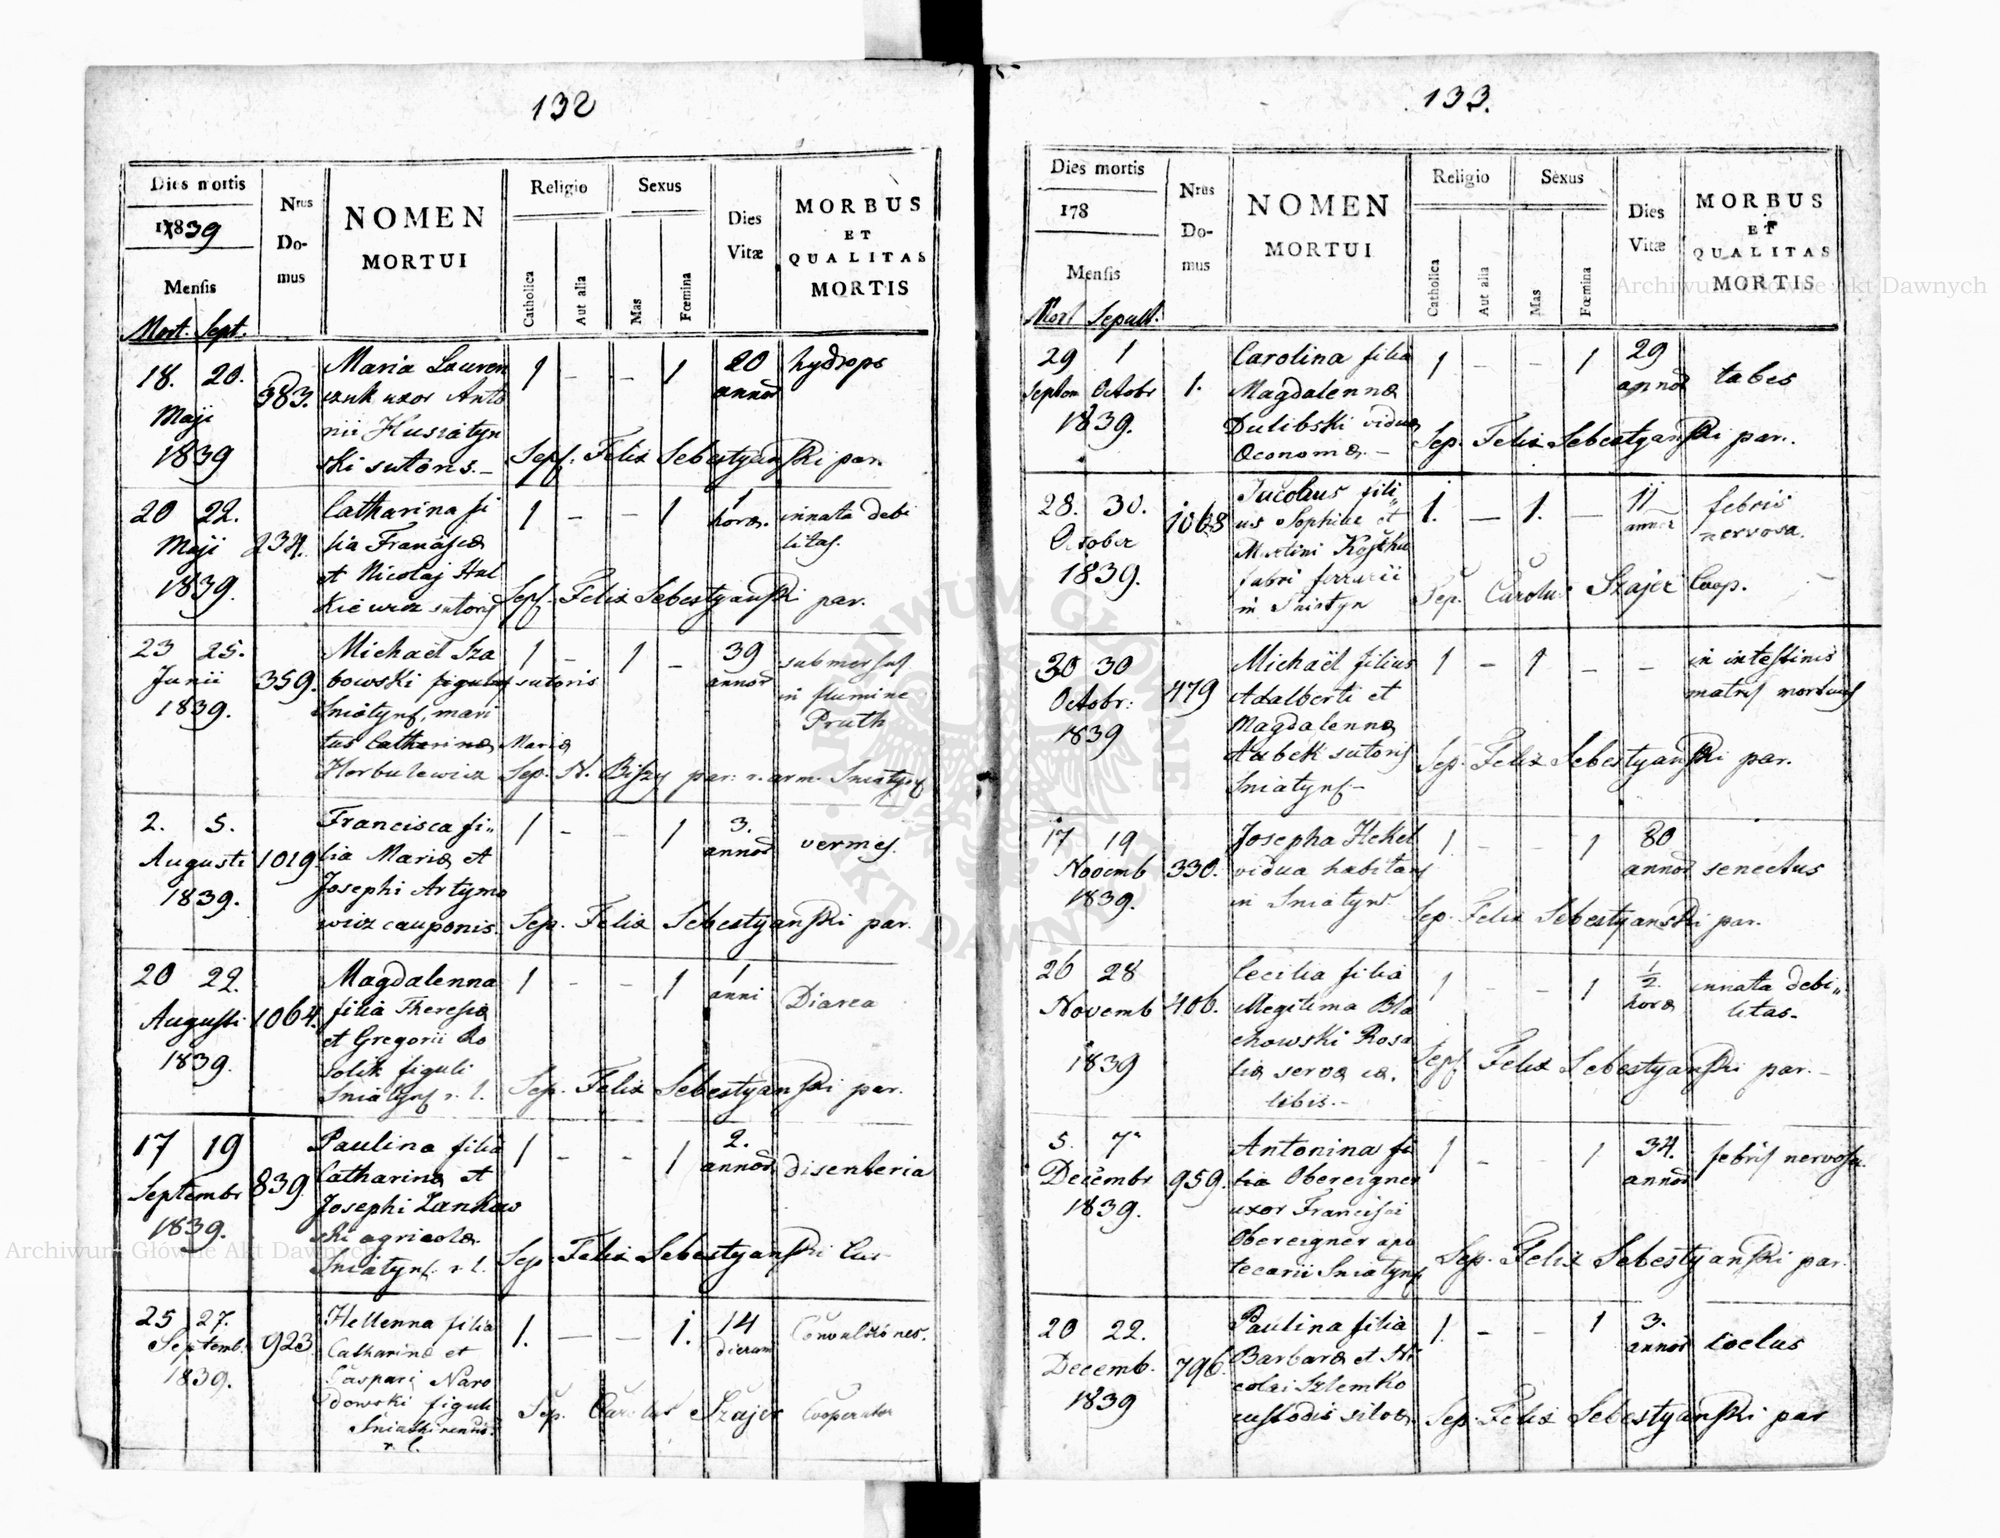 132
Dies mortis
Nrus Domus
NOMEN MORTUI
Religio
Sexus
Dies Vitæ
MORBUS ET QUALITAS MORTIS
17839
Mensis
Catholica
Aut alia
Mas
Fœmina
Mort. Sept.
18. 20. Maji 1839
383.
Maria Lauren
czuk uxor Anto
nii Husiatyn
ski sutoris.
1 – – 1
20 annor
hydrops
Sep. Felix Sebestyanski par.
20 22. Maji 1839.
234.
Catharina fi
lia Franciscæ
et Nicolaj Hal
kiewicz sutoris
1 – – 1
1 horæ.
innata debi
litas.
Sep. Felix Sebestyanski par.
23 25. Junii 1839.
359.
Michaël Sza
bowski figulus sutoris
Sniatyns, mari
tus Catharinæ Mariæ
Horbulewicz
1 – 1 –
39 annor
submersus
in flumine
Pruth
Sep. N. Biszy par: r. arm. Sniatyns
2. 5. Augusti 1839.
1019.
Francisca fi„
lia Mariæ et
Josephi Artymo
wicz cauponis.
1 – – 1
3. annor
vermes.
Sep. Felix Sebestyanski par.
20 22. Augusti 1839.
1064.
Magdalenna
filia Theresiæ
et Gregorii Ro
solik figuli
Sniatyns r. l.
1 – – 1
1 anni
Diarea
Sep. Felix Sebestyanski par.
17 19 Septembr 1839.
839.
Paulina filia
Catharinæ et
Josephi Zankow
ski agricolæ
Sniatyns. r. l.
1 – – 1
2. annor
disenteria
Sep. Felix Sebestyanski Cur
25 27. Septemb. 1839.
923
Hellenna filia
Catharinæ et
Caspari Naro
dowski figuli
r. l.
1. – – 1.
14 dierum
Convulsiones.
Sep. Carolus Szajer Cooperator
133.
Dies mortis
Nrus Domus
NOMEN MORTUI
Religio
Sexus
Dies Vitæ
MORBUS ET QUALITAS MORTIS
178
Mensis
Catholica
Aut alia
Mas
Fœmina
Mort Sepult.
29 1
Septem Octobr 1839.
1.
Carolina filia
Magdalennæ
Dulibski viduæ
Oeconomæ. –
1 – – 1
29 annor
tabes
Sep. Felix Sebestyanski par.
28. 30. October 1839.
1068
Jacobus fili„
us Sophiæ et
Martini
fabri ferrarii
in Sniatyn
1. – 1. –
11 annor
febris
nervosa.
Sep. Carolus Szajer Coop.
30 30 Octobr: 1839
479
Michaël filius
Adalberti et
Magdalennæ
Aubek sutoris
Sniatyns –
1 – 1 – –
in intestinis
matris mortuus
Sep. Felix Sebestyanski par.
17 19 Novemb 1839.
330.
Josepha Hekel
vidua habitans
in Sniatyn.
1 – – 1
80 annor
senectus
Sep. Felix Sebestyanski par.
26 28 Novemb 1839
406.
Cecilia filia
illegitima Bla
chowski Rosa
liæ servæ cæ.
libis. –
1 – – 1
1/2. horæ
innata debi„
litas.
Sep. Felix Sebestyanski par. –
5. 7. Decembr 1839.
959.
Antonina fi
lia Obereigner
uxor Francisci
Obereigner apo
tecarii Sniatyns
1 – – 1
34. annor
febris nervosa.
Sep. Felix Sebestyanski par.
20 22. Decemb. 1839
796.
Paulina filia
Barbaræ et Ni
colai Szlemko
custodis silvæ.
1. – – 1
3. annor
Sep. Felix Sebestyanski par
Archiwum Główne Akt Dawnych
Archiwum Główne Akt Dawnych
ARCHIWUM GŁÓWNE AKT DAWNYCH